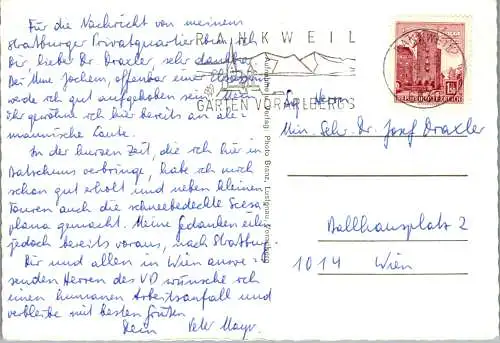 Für die Nachricht von meinem
Straßburger Privatquartier bin ich
Dir lieber Dr. Draxler, sehr dankbar.
Bei Mme Jochem, offenbar einer
werde ich gut aufgehoben sein. Hier
gewöhne ich hier bereits an ale-
mannische Laute.
In der kurzen Zeit, die ich hier in
Batschuns verbringe, habe ich mich
schon gut erholt und neben kleinen
Touren auch die schneebedeckte Scesa
plana gemacht. Meine Gedanken eilen
jedoch bereits voraus, nach Straßburg.
Dir und allen in Wien anwe-
senden Herren des VD wünsche ich
einen humanen Arbeitsanfall und
verbleibe mit besten Grüßen
Dein Peter Mayr.
RANKWEIL
GARTEN VORARLBERGS
Photo Branz, Lustenau, Vorarlberg
REPUBLIK ÖSTERREICH
Herrn
Min. Sekr. Dr. Josef Draxler
Ballhausplatz 2
1014 Wien